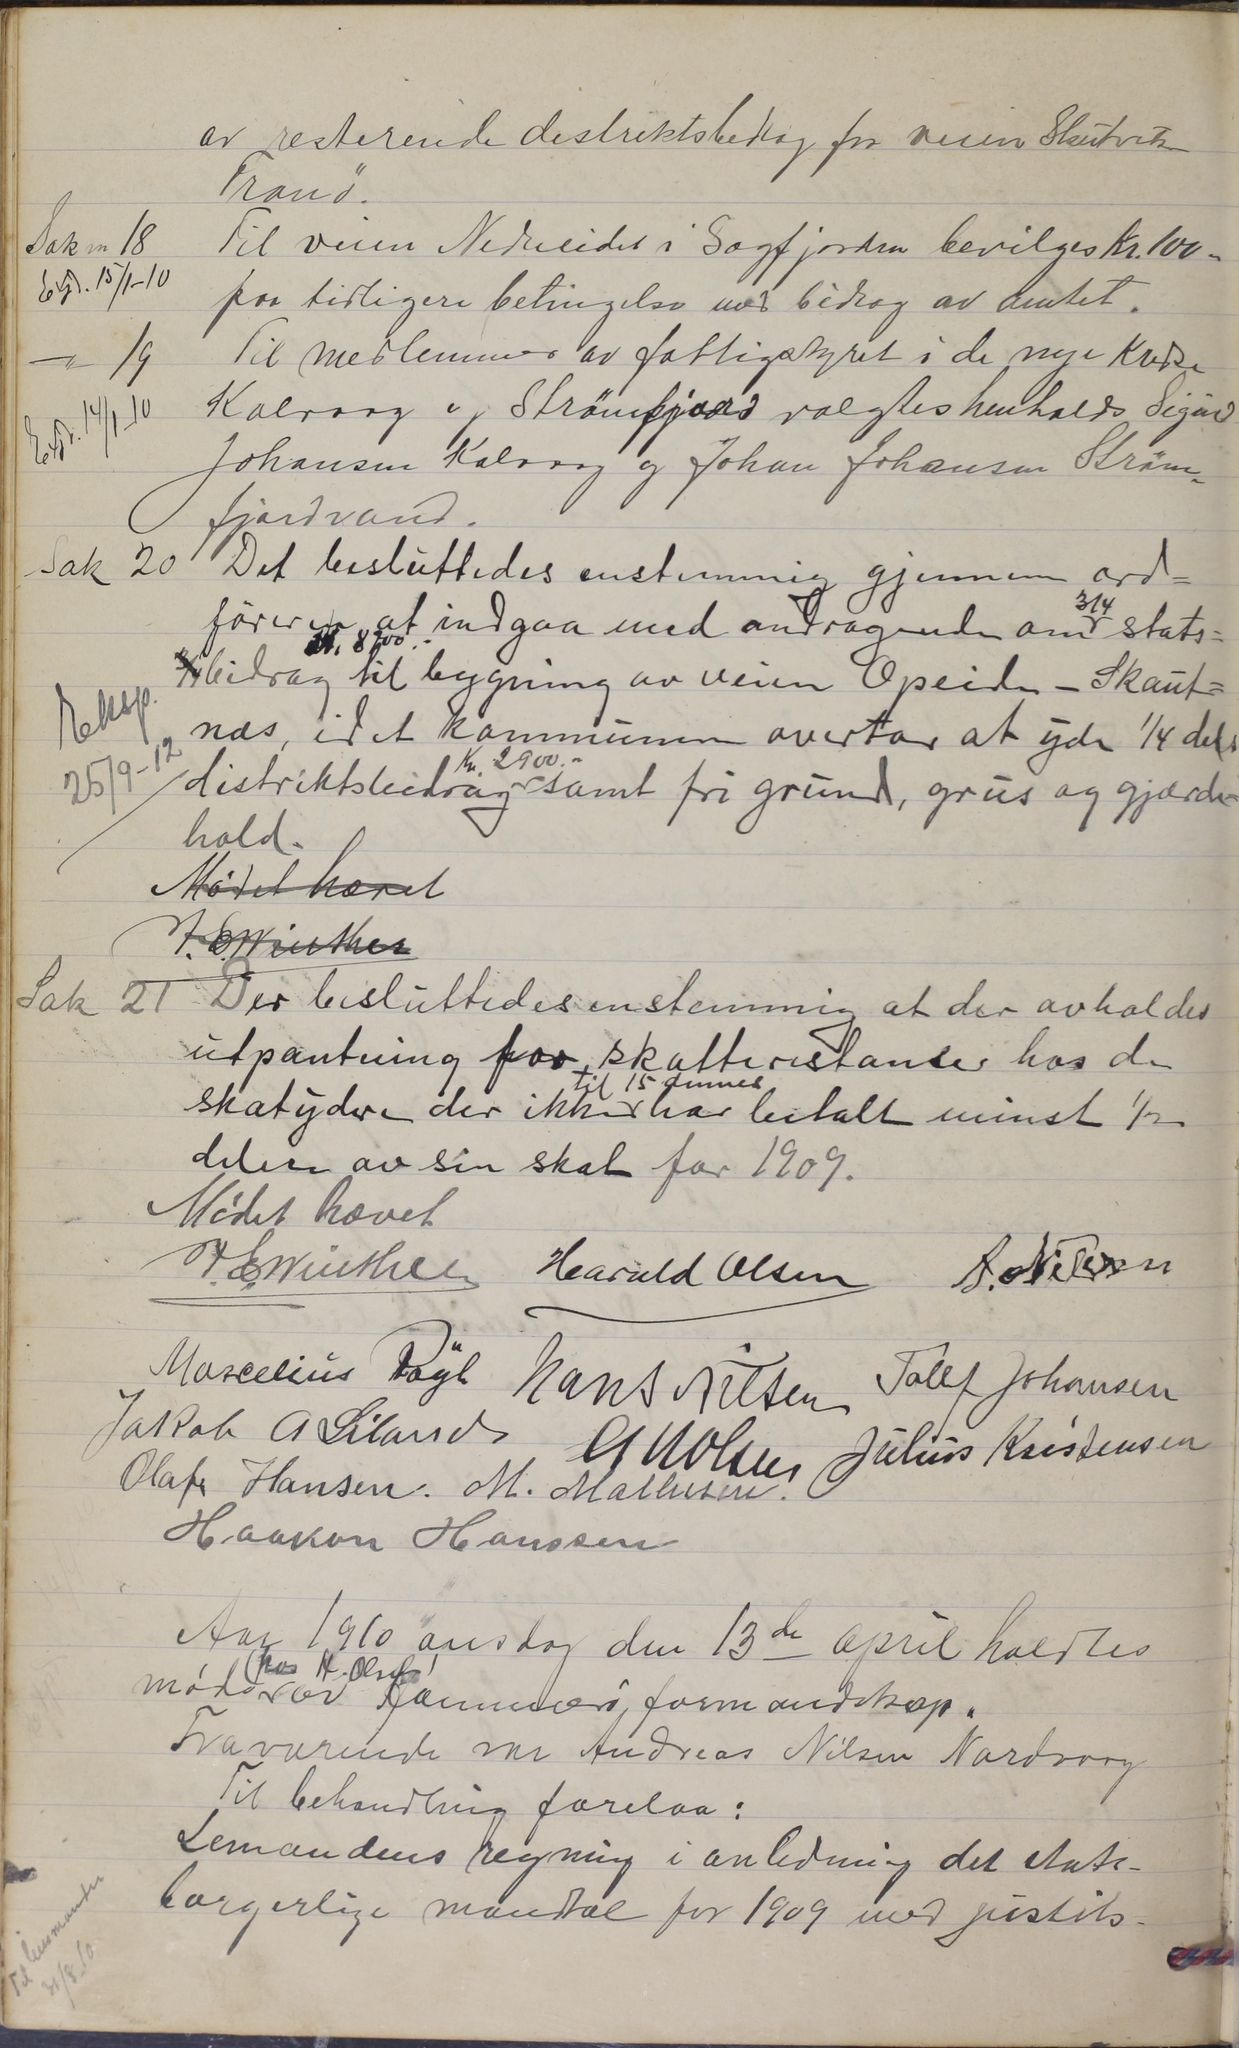 av resterende distriktsbidrag for veien Skutvik
Tranö.
Sak nr 18 Til veien Nedreeidet i Sagfjorden bevilges Kr. 100-
Exp. 15/1-10 paa tidligere betingelse med bidrag av amtet.
-"- 19 Til medlemmer av fattigstyret i de nye Kredse
Exp. 14/1-10 Kalvaag og Strömfjord valgtes henholds. Sigurd
Johansen Kalvaag og Johan Johansen Ström-
fjordvand.
Sak 20 Det besluttedes enstemmig gjennem ord=
föreren at indgaa med andragende om 3/4 stats=
bidrag Kr. 8700.- til bygning av veien Opeide - Skaut=
Eksp. 25/9-12 nes, idet kommunen overtar at yde 1/4 dels
distriktsbidrag Kr. 2900.- samt fri grund, grus og gjærde-
hold.
Mödet hævet
F. E. Winther
Sak 21 Der besluttedes enstemmig at der avholdes
utpantning for skatterestanser hos de
skatydere der ikke til 15 dennes har betalt minst 1/2
delen av sin skat for 1909.
Mödet hævet
F. E. Winther Harald Olsen A. Nilsen
Marcelius Hans Nilsen Tollef Johansen
Jakob A Liland Julius Kristensen
Olaf Hansen. M. Mathisen.
Haakon Hanssen
Aar 1910 onsdag den 13de april holdtes
möde (hos H. Olsen) av Hammerö formandskap.
Fraværende var Andreas Nilsen Nordvaag
Til behandling forelaa:
Lensmandens regning i anledning det stats-
borgerlige mandtal for 1909 med justits-
Til lensmanden
31/8 10